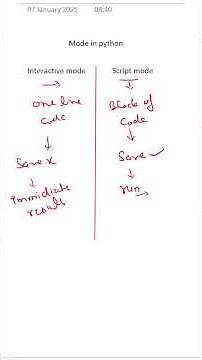 07 January 2025 08:40
Mode in python
Interactive mode
one line
code
Save x
Immidiate
result
Script mode
Block of
code
Save ✓
run